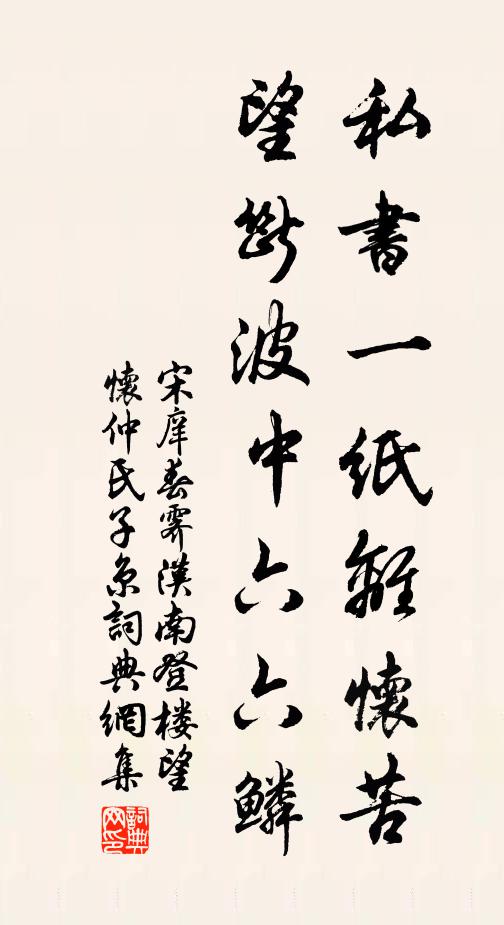 私書一紙離懷苦
望斷波中六六鱗
宋庠春霽漢南登樓望
懷仲氏子京詞典網集
詞典網印